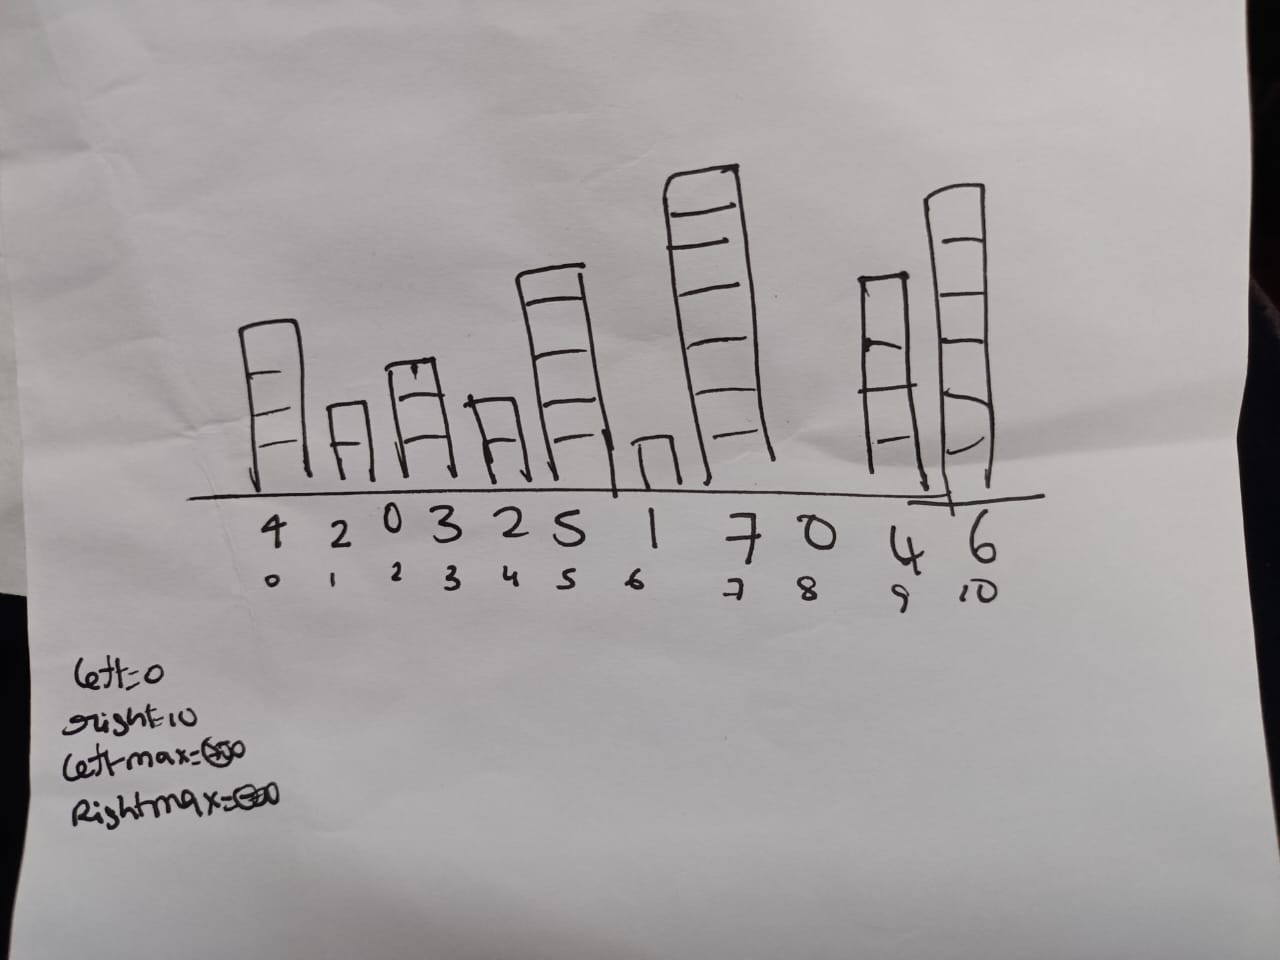 4 2 0 3 2 5 1 7 0 4 6
0 1 2 3 4 5 6 7 8 9 10
left=0
right=10
left max=
Rightmax=